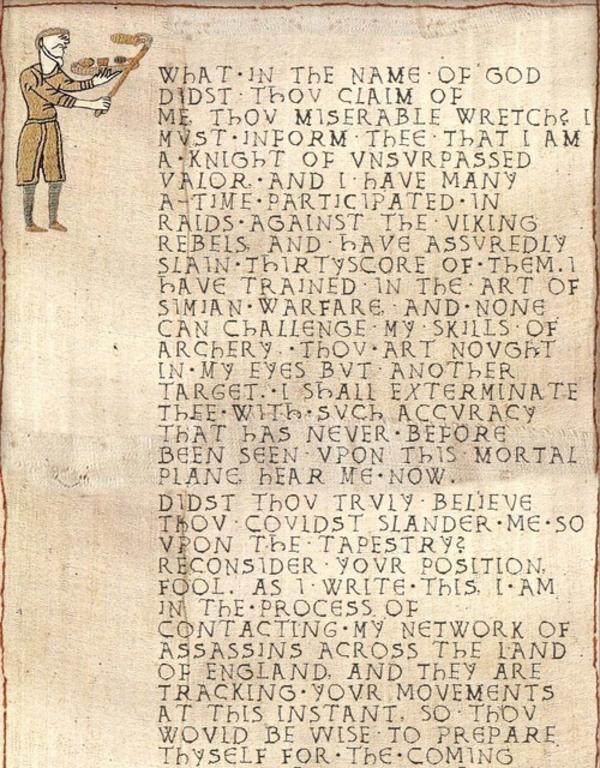 WHAT·IN THE NAME·OF GOD
DIDST·THOV CLAIM OF
ME, THOV MISERABLE WRETCH? I
MVST·INFORM·THEE·THAT I AM
A·KNIGHT OF VNSVRPASSED
VALOR,·AND I·HAVE MANY
A-TIME·PARTICIPATED·IN
RAIDS·AGAINST THE·VIKING
REBELS, AND·HAVE ASSVREDLY
SLAIN·THIRTYSCORE OF·THEM. I
HAVE TRAINED·IN THE·ART OF
SIMIAN·WARFARE, AND·NONE
CAN CHALLENGE·MY·SKILLS OF
ARCHERY.·THOV·ART NOVGHT
IN·MY EYES BVT·ANOTHER
TARGET.·I SHALL EXTERMINATE
THEE·WITH·SVCH ACCVRACY
THAT HAS NEVER·BEFORE
BEEN SEEN·VPON THIS·MORTAL
PLANE, HEAR ME·NOW.
DIDST THOV TRVLY·BELIEVE
THOV·COVLDST SLANDER·ME·SO
VPON THE·TAPESTRY?
RECONSIDER·YOVR POSITION,
FOOL. AS I·WRITE·THIS, I·AM
IN THE·PROCESS OF
CONTACTING·MY NETWORK OF
ASSASSINS ACROSS THE LAND
OF ENGLAND, AND THEY ARE
TRACKING·YOVR MOVEMENTS
AT THIS INSTANT, SO·THOV
WOVLD BE WISE·TO PREPARE
THYSELF FOR·THE·COMING